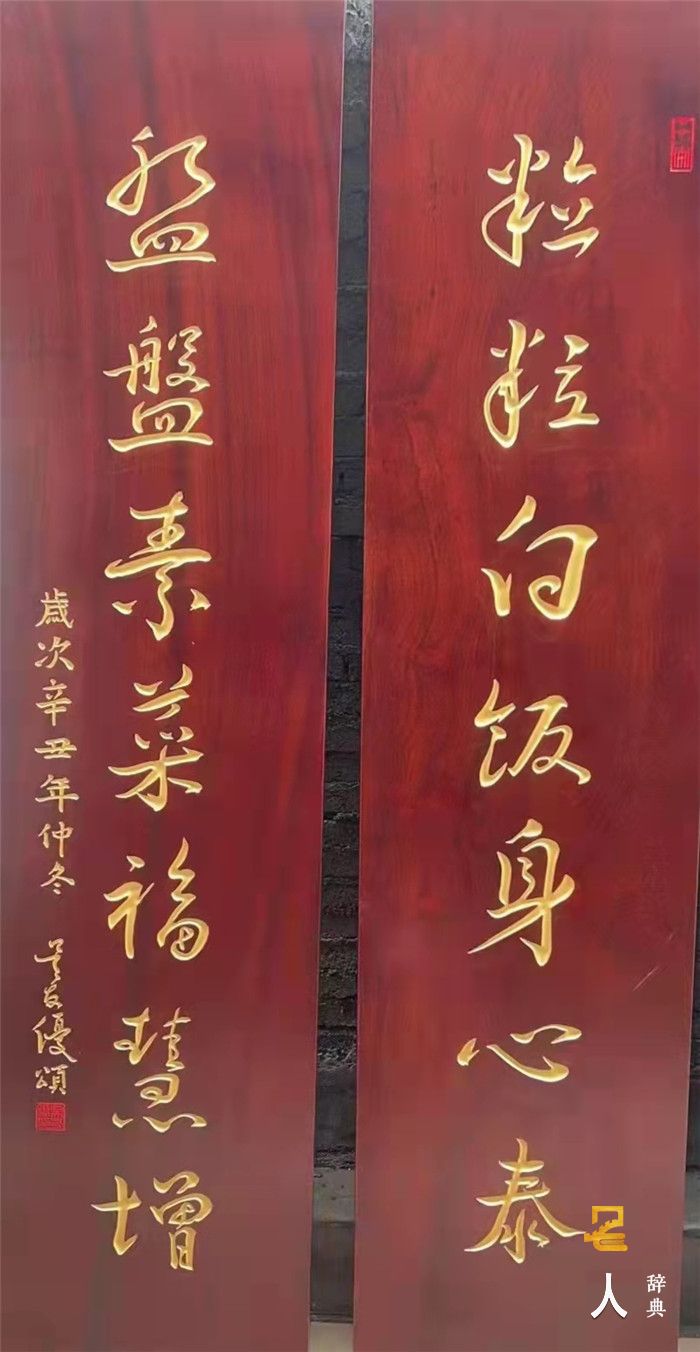 粒粒白飯身心泰
盘盤素菜福慧增
歲次辛丑年仲冬 吴友優頌
名人辞典